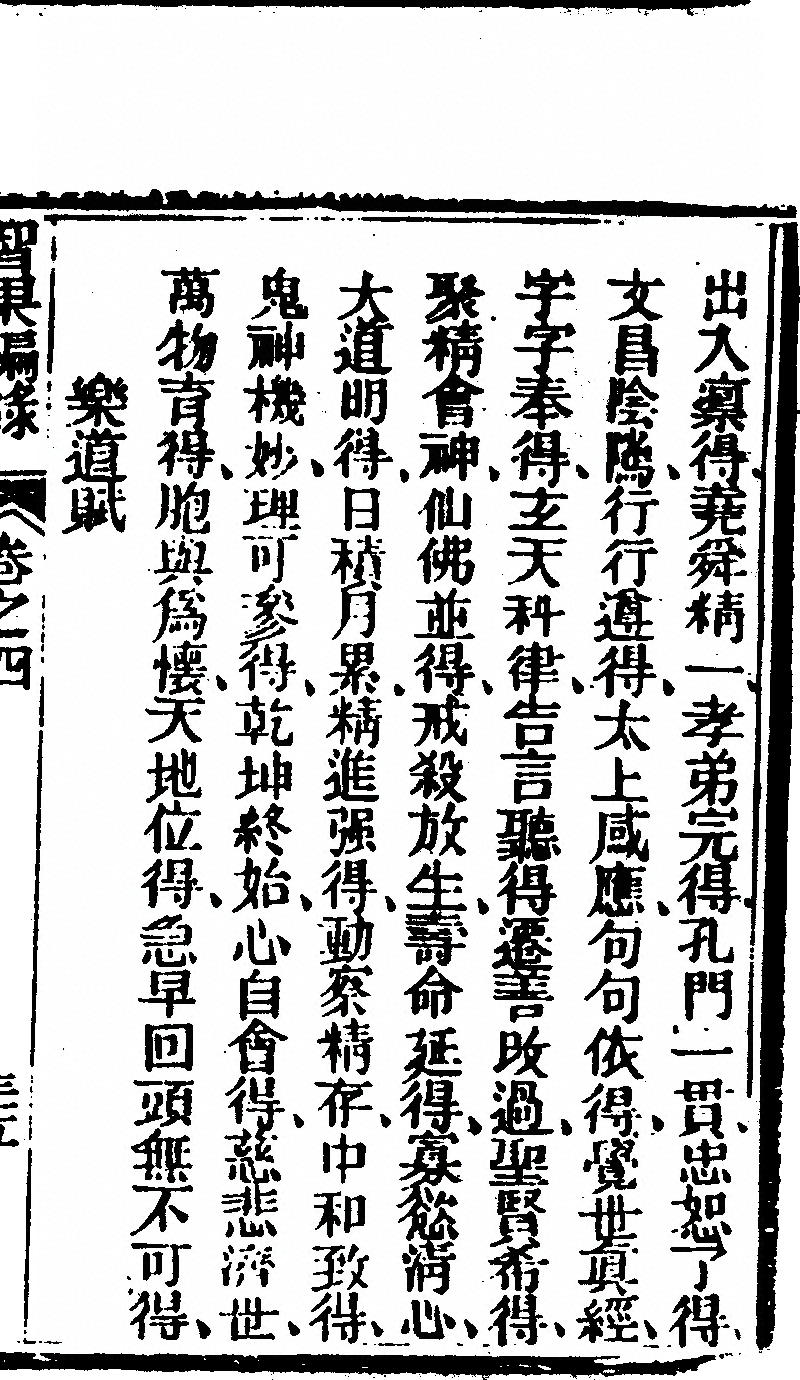 出入稟得、堯舜精一、孝弟完得、孔門一貫、忠恕了得、
文昌陰隲、行行遵得、太上感應、句句依得、覺世眞經、
字字奉得、玄天科律、告言聽得、遷善改過、聖賢希得、
聚精會神、仙佛並得、戒殺放生、壽命延得、寡慾淸心、
大道明得、日積月累、精進强得、動察精存、中和致得、
鬼神機妙、理可參得、乾坤終始、心自會得、慈悲濟世、
萬物育得、胞與爲懷、天地位得、急早回頭無不可得、
樂道賦
智果編錄 卷之四